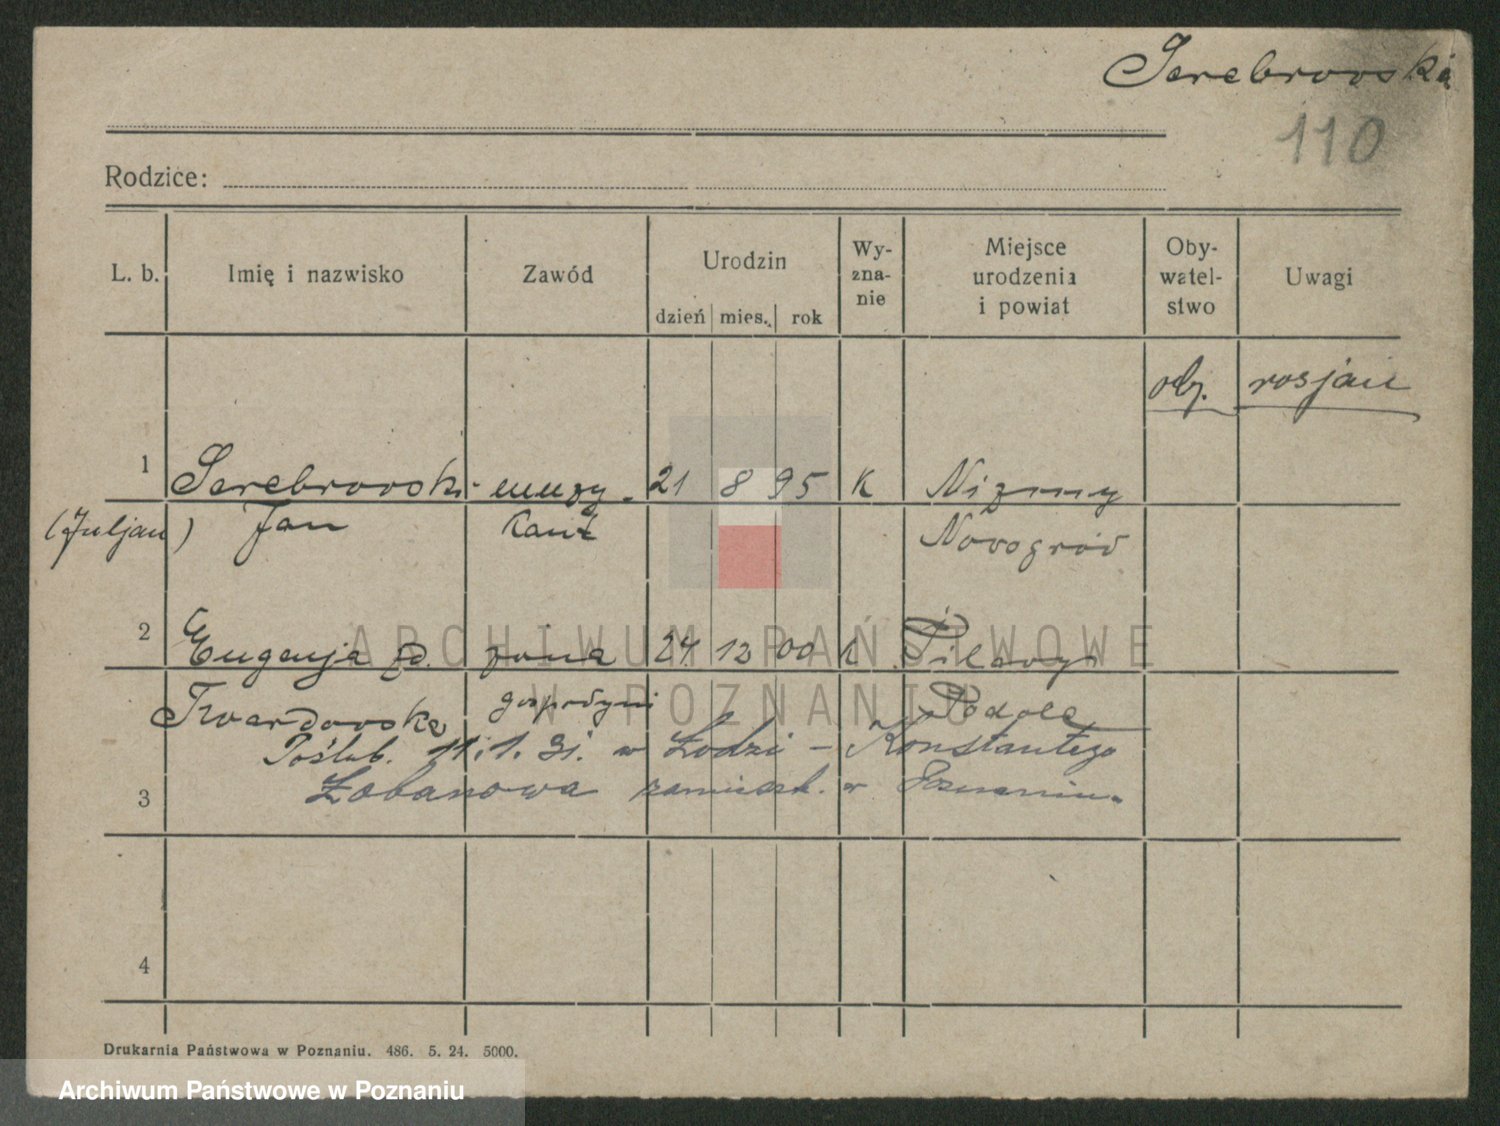 Serebrowski
110
Rodzice:
L. b. Imię i nazwisko Zawód Urodzin dzień mies. rok Wy-zna-nie Miejsce urodzenia i powiat Oby-watel-stwo Uwagi
ob. rosjan
1 Serebrowski muzy- 21 8 95 K Niżnny
(Juljan) Jan kant Novogród
2 Eugenja żona 24 12 00 k
Twardowska gospodyni Podole
Poślub. 11.1.31. w Łodzi – Konstantego
3 Łobanowa zamieszk. w Poznaniu.
4
Drukarnia Państwowa w Poznaniu. 486. 5. 24. 5000.
ARCHIWUM PAŃSTWOWE
W POZNANIU
Archiwum Państwowe w Poznaniu